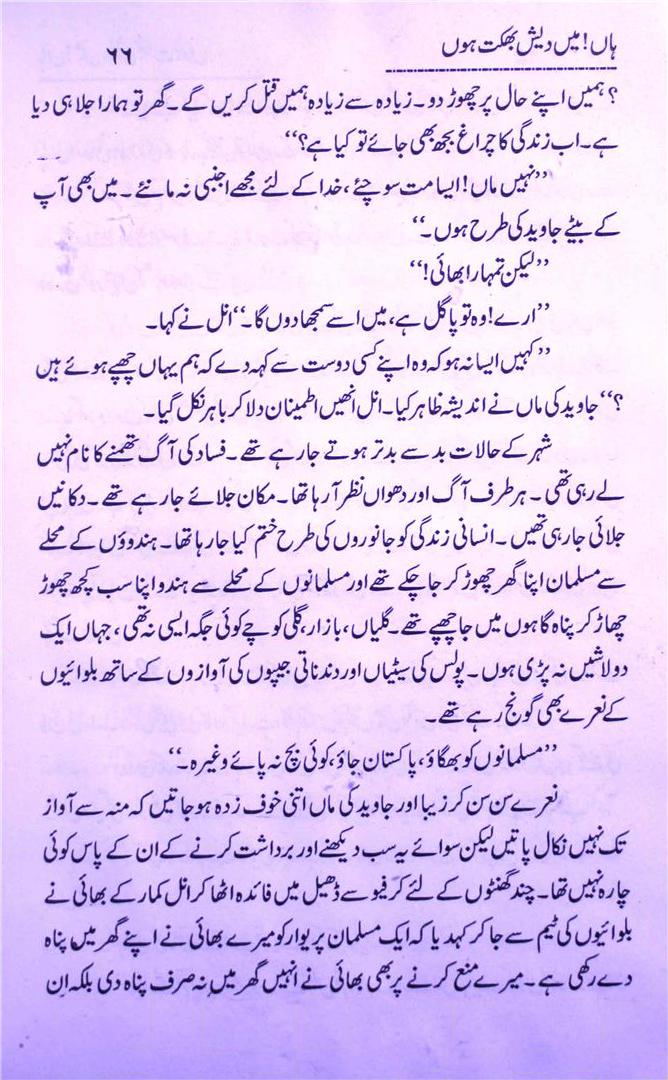 ہاں! میں دیش بھکت ہوں
۶۶
؟ ہمیں اپنے حال پر چھوڑ دو۔ زیادہ سے زیادہ ہمیں قتل کریں گے۔ گھر تو ہمارا جلا ہی دیا
ہے۔ اب زندگی کا چراغ بجھ بھی جائے تو کیا ہے؟‘‘
’’نہیں ماں! ایسا مت سوچئے، خدا کے لئے مجھے اجنبی نہ مانئے۔ میں بھی آپ
کے بیٹے جاوید کی طرح ہوں۔‘‘
’’لیکن تمہارا بھائی!‘‘
’’ارے! وہ تو پاگل ہے، میں اسے سمجھا دوں گا۔‘‘ انل نے کہا۔
’’کہیں ایسا نہ ہو کہ وہ اپنے کسی دوست سے کہہ دے کہ ہم یہاں چھپے ہوئے ہیں
؟‘‘ جاوید کی ماں نے اندیشہ ظاہر کیا۔ انل انھیں اطمینان دلا کر باہر نکل گیا۔
شہر کے حالات بد سے بدتر ہوتے جا رہے تھے۔ فساد کی آگ تھمنے کا نام نہیں
لے رہی تھی۔ ہر طرف آگ اور دھواں نظر آ رہا تھا۔ مکان جلائے جا رہے تھے۔ دکانیں
جلائی جا رہی تھیں۔ انسانی زندگی کو جانوروں کی طرح ختم کیا جا رہا تھا۔ ہندوؤں کے محلے
سے مسلمان اپنا گھر چھوڑ کر جا چکے تھے اور مسلمانوں کے محلے سے ہندو اپنا سب کچھ چھوڑ
چھاڑ کر پناہ گاہوں میں جا چھپے تھے۔ گلیاں، بازار، گلی کوچے کوئی جگہ ایسی نہ تھی، جہاں ایک
دو لاشیں نہ پڑی ہوں۔ پولس کی سیٹیاں اور دندناتی جیپوں کی آوازوں کے ساتھ بلوائیوں
کے نعرے بھی گونج رہے تھے۔
’’مسلمانوں کو بھگاؤ، پاکستان جاؤ، کوئی بچ نہ پائے وغیرہ۔‘‘
نعرے سن سن کر زیبا اور جاوید کی ماں اتنی خوف زدہ ہو جاتیں کہ منہ سے آواز
تک نہیں نکال پاتیں لیکن سوائے یہ سب دیکھنے اور برداشت کرنے کے ان کے پاس کوئی
چارہ نہیں تھا۔ چند گھنٹوں کے لئے کرفیو سے ڈھیل میں فائدہ اٹھا کر انل کمار کے بھائی نے
بلوائیوں کی ٹیم سے جا کر کہہ دیا کہ ایک مسلمان پریوار کو میرے بھائی نے اپنے گھر میں پناہ
دے رکھی ہے۔ میرے منع کرنے پر بھی بھائی نے انہیں گھر میں نہ صرف پناہ دی بلکہ اِن